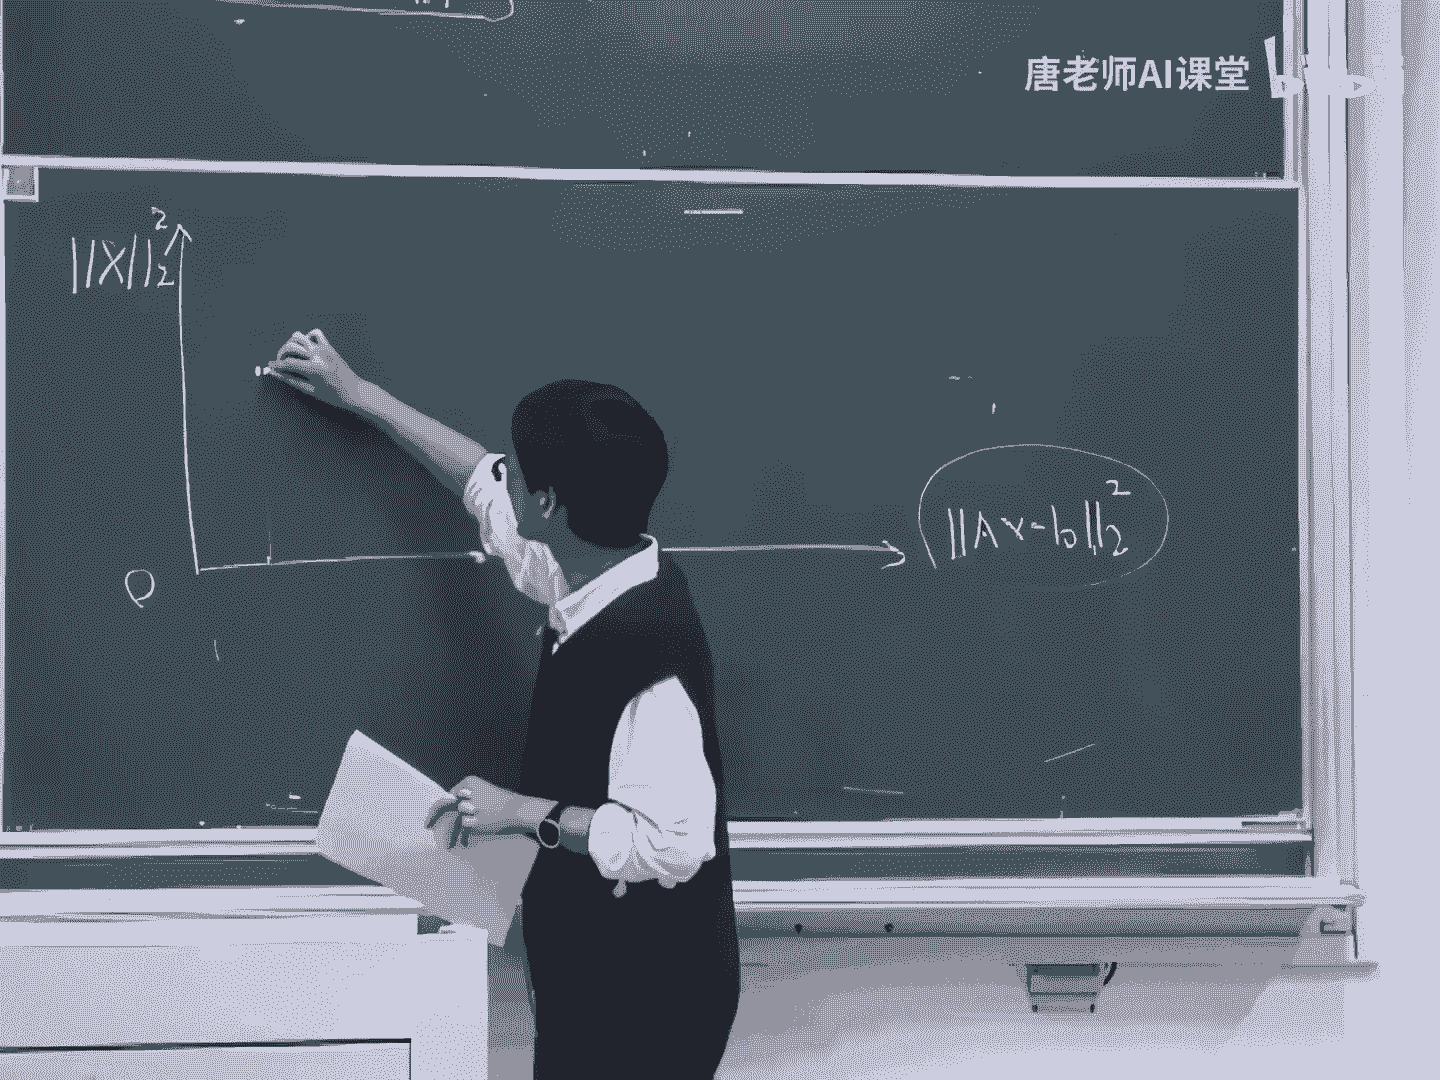 唐老师AI课堂
||X||₂²
||Ax-b||₂²
O